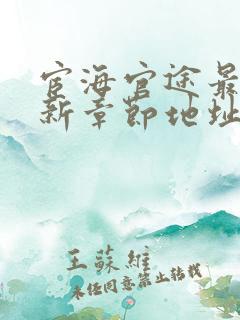 宦海官途最
新章節地址
王蘇維
未经同意禁止转载